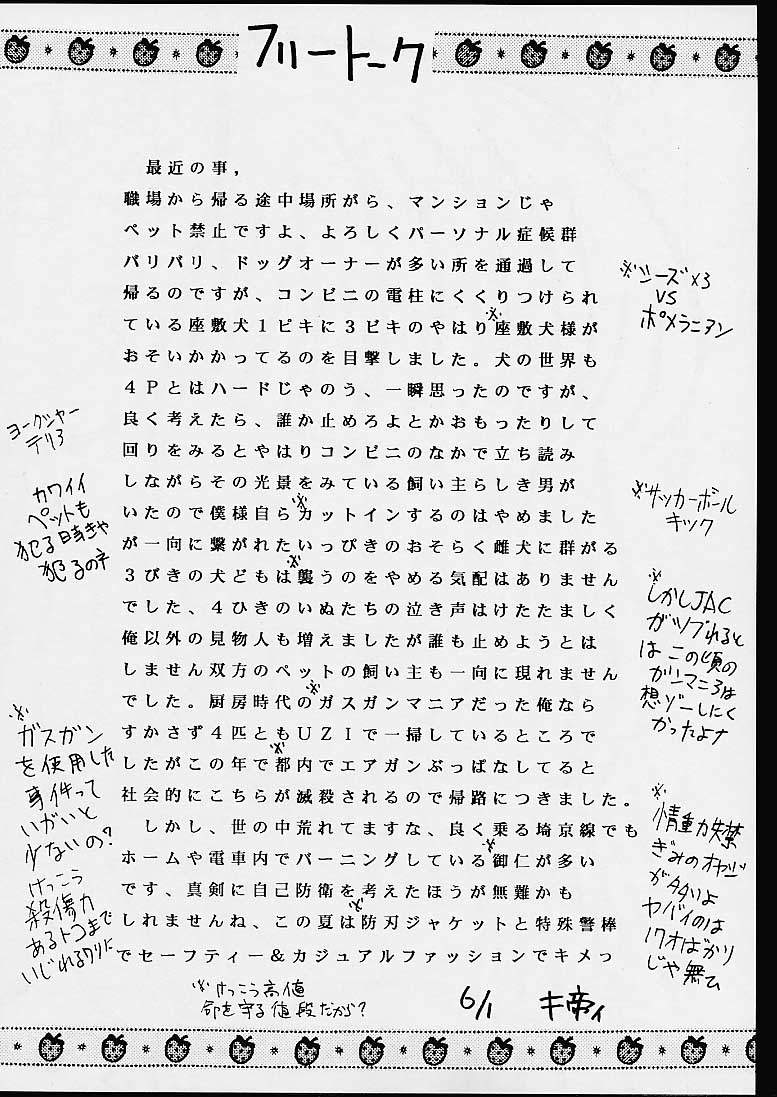 フリートーク
最近の事,
職場から帰る途中場所がら、マンションじゃ
ペット禁止ですよ、よろしくパーソナル症候群
バリバリ、ドッグオーナーが多い所を通過して
帰るのですが、コンビニの電柱にくくりつけられ
ている座敷犬1ピキに3ビキのやはり座敷犬様が
おそいかかってるのを目撃しました。犬の世界も
4Pとはハードじゃのう、一瞬思ったのですが、
良く考えたら、誰か止めろよとかおもったりして
回りをみるとやはりコンビニのなかで立ち読み
しながらその光景をみている飼い主らしき男が
いたので僕様自らカットインするのはやめました
が一向に繋がれたいっぴきのおそらく雌犬に群がる
3びきの犬どもは襲うのをやめる気配はありません
でした、4ひきのいぬたちの泣き声はけたたましく
俺以外の見物人も増えましたが誰も止めようとは
しません双方のペットの飼い主も一向に現れません
でした。厨房時代のガスガンマニアだった俺なら
すかさず4匹ともUZIで一掃しているところで
したがこの年で都内でエアガンぶっぱなしてると
社会的にこちらが滅殺されるので帰路につきました。
しかし、世の中荒れてますな、良く乗る埼京線でも
ホームや電車内でバーニングしている御仁が多い
です、真剣に自己防衛を考えたほうが無難かも
しれませんね、この夏は防刃ジャケットと特殊警棒
でセーフティー&カジュアルファッションでキメっ
※シーズ×3
VS
ポメラニアン
ヨークシャー
テリア
カワイイ
ペットも
犯る時きゃ
犯るのネ
※サッカーボール
キック
※
しかしJAC
がツブれると
はこの頃の
ガンマニアは
想ゾーしにく
かったよナ
※
ガスガン
を使用した
事件って
いがいと
少ないの?
けっこう
殺傷力
あるトコまで
いじれるワリに
※
情動失禁
ぎみのオヤジ
がタタいよ
ヤバイのは
17才ばかり
じゃ無ひ
※けっこう高値
命を守る値段だから?
6/1